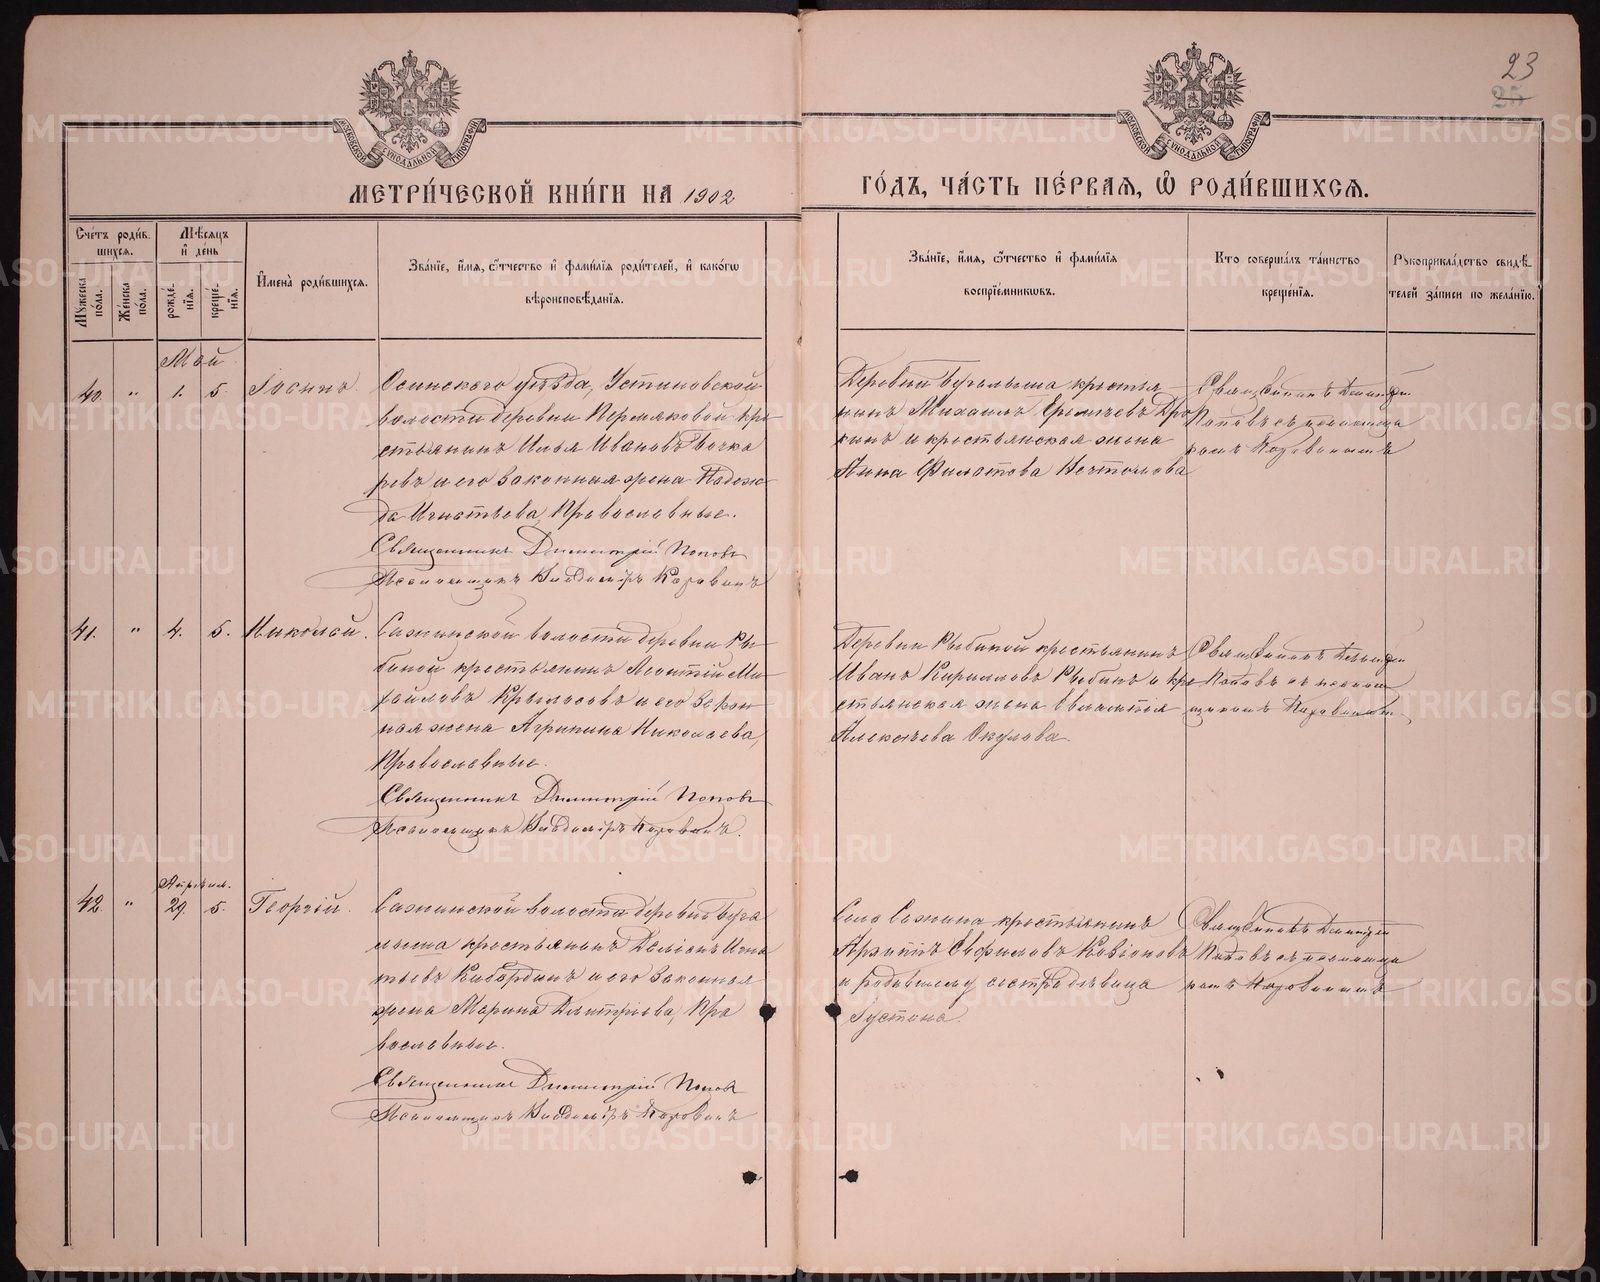 23
25
МОСКОВСКОЙ СѴНОДАЛЬНОЙ ТИПОГРАФІИ
МОСКОВСКОЙ СѴНОДАЛЬНОЙ ТИПОГРАФІИ
МЕТРИ́ЧЕСКОЙ КНИ́ГИ НА 1902
ГО́ДЪ, ЧА́СТЬ ПЕ́РВАЯ, Ѡ҆ РОДИ́ВШИХСЯ.
Сче́тъ роди́в
шихся.
Мꙋжеска по́ла.
Же́нска по́ла.
Мѣ́сяцъ
и҆ де́нь
рожде́нїя.
креще́нїя.
И҆мена̀ роди́вшихся.
Зва́нїе, и҆́мя, ѻ҆́тчество и҆ фами́лїя роди́телей, и҆ како́гѡ
вѣроисповѣ́данїя.
Зва́нїе, и҆́мя, ѻ҆́тчество и҆ фами́лїя
воспрїе́мникѡвъ.
Кто соверша́лъ та́инство
креще́нїя.
Рꙋкоприкла́дство свидѣ́
телей за́писи по жела́нїю.
Май
40. " 1. 5. Іоаннъ.
Осинскаго уѣзда, Устиновской
волости деревни Пермяковой кре
стьянинъ Илья Ивановъ Бочка
ревъ и его законная жена Надеж
да Игнатьева, Православные.
Священникъ Димитрій Поповъ
Псаломщикъ Владиміръ Коровинъ
Деревни Бугалыша крестья
нинъ Михаилъ Дро
кинъ и крестьянская жена
Анна Филатова
Священникъ Димитрій
Поповъ съ псаломщи
комъ Коровинымъ
41. " 4. 5. Николай.
Сажинской волости деревни Ры
биной крестьянинъ Леонтій Ми
хайловъ Крылосовъ и его закон
ная жена Агрипина Николаева,
Православные.
Священникъ Димитрій Поповъ
Псаломщикъ Владиміръ Коровинъ.
Деревни Рыбиной крестьянинъ
Иванъ Кирилловъ Рыбинъ и кре
стьянская жена
Алексѣева Окулова.
Священникъ Димитрій
Поповъ съ псалом
щикомъ Коровинымъ
Апрѣля.
42. " 29. 5. Георгій.
Сажинской волости деревни Буга
лыша крестьянинъ Игна
тьевъ Кабардинъ и его законная
жена Марина Дмитріева, Пра
вославные.
Священникъ Димитрій Поповъ
Псаломщикъ Владиміръ Коровинъ
Села Сажина крестьянинъ
Архипъ
и родившему сестра дѣвица
Іустина.
Священникъ Димитрій
Поповъ съ псаломщи
комъ Коровинымъ
METRIKI.GASO-URAL.RU